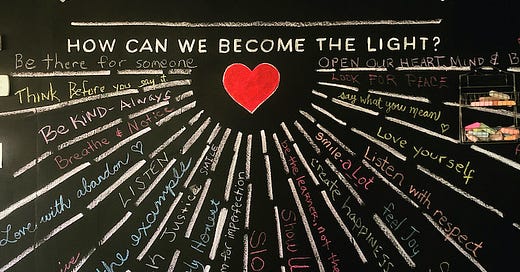 HOW CAN WE BECOME THE LIGHT?
Be there for someone
OPEN OUR HEART, MIND & B
Think Before you say it
LOOK FOR PEACE
Be KIND - Always
say what you mean
Breathe & Notice
Love yourself
Love with abandon
Listen with respect
LISTEN
smile a Lot
the example
create happiness
feel Joy
SMILE
k Justice
ly Honest
m for imperfection
be the learner, not the
Show U
Slo
ive